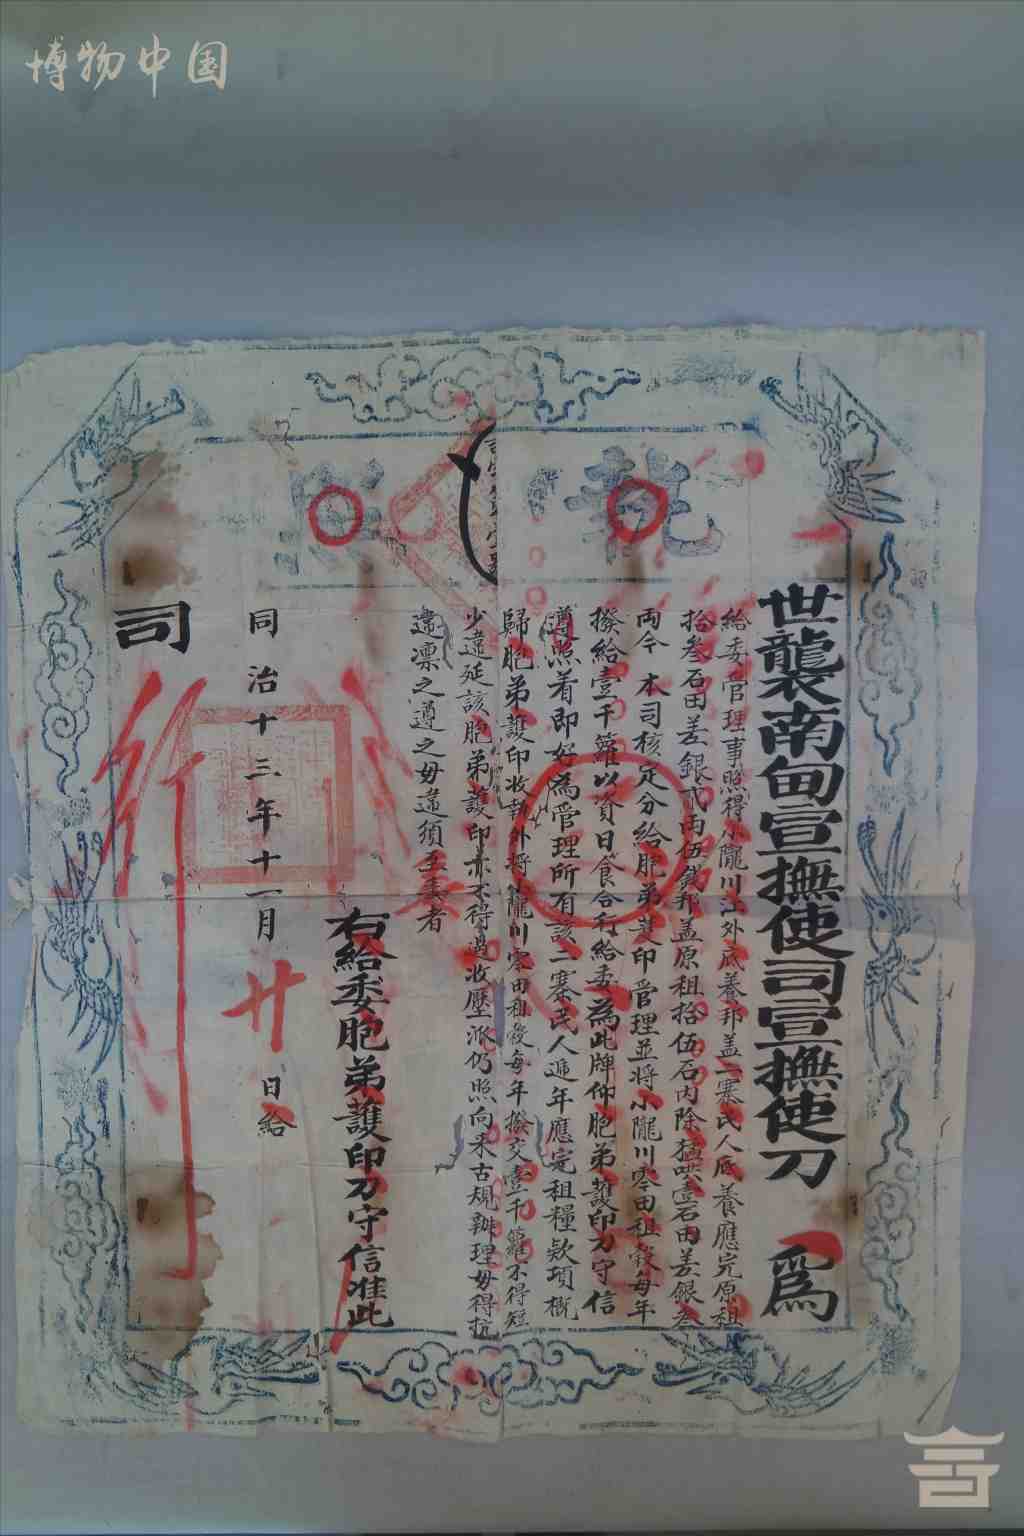 博物中国
執照
世襲南甸宣撫使司宣撫使刀　為
給委管理事照得小隴川江外底養邦盖二寨民人底養應完原租
拾叁石田差銀弍両伍錢邦盖原租拾伍石内除猛哄壹石田差銀叁
両今　本司核定分給胞弟護印管理並將小隴川零田租穀每年
撥給壹千籮以資日食合行給委為此牌仰胞弟護印刀守信
遵照着即好為管理所有該二寨民人逓年應完租糧欵項概
歸胞弟護印收執外將小隴川零田租穀每年撥交壹千籮不得短
少違延該胞弟護印亦不得過收壓派仍照向来古規辦理毋得抗
違凛之遵之毋違須至委者
右給委胞弟護印刀守信准此
同治十三年十一月廿日給
司